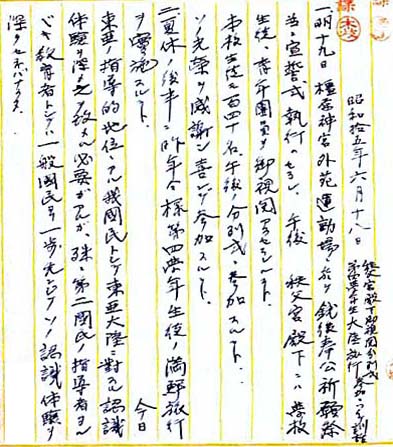 昭和拾五年六月十八日
秩父宮殿下御視閲分列式
参加
一、明十九日橿原神宮外苑運動場ニ於テ銃後奉公祈願祭
並ニ宣誓式執行アラセラレ、午後 秩父宮殿下ニハ学校
生徒、青年団員ヲ御視閲アラセラルト
本校生徒二百四十名、午後ノ分列式ニ参加スルト、
ソノ光栄ヲ感謝シ喜ンデ参加スルト
二、夏休ノ後半ニ昨年ノ様第四学年生徒ノ満鮮旅行
ヲ実施スルト、 今日
東亜ノ指導的地位ニアル我国民トシテ東亜大陸ニ対スル認識
体験ヲ深
必要ガアルガ、殊ニ第二国民ノ指導者タル
ベキ教育者トシテハ一般国民ヨリ一歩先ンジテソノ認識体験ヲ
深クセネバナラヌ